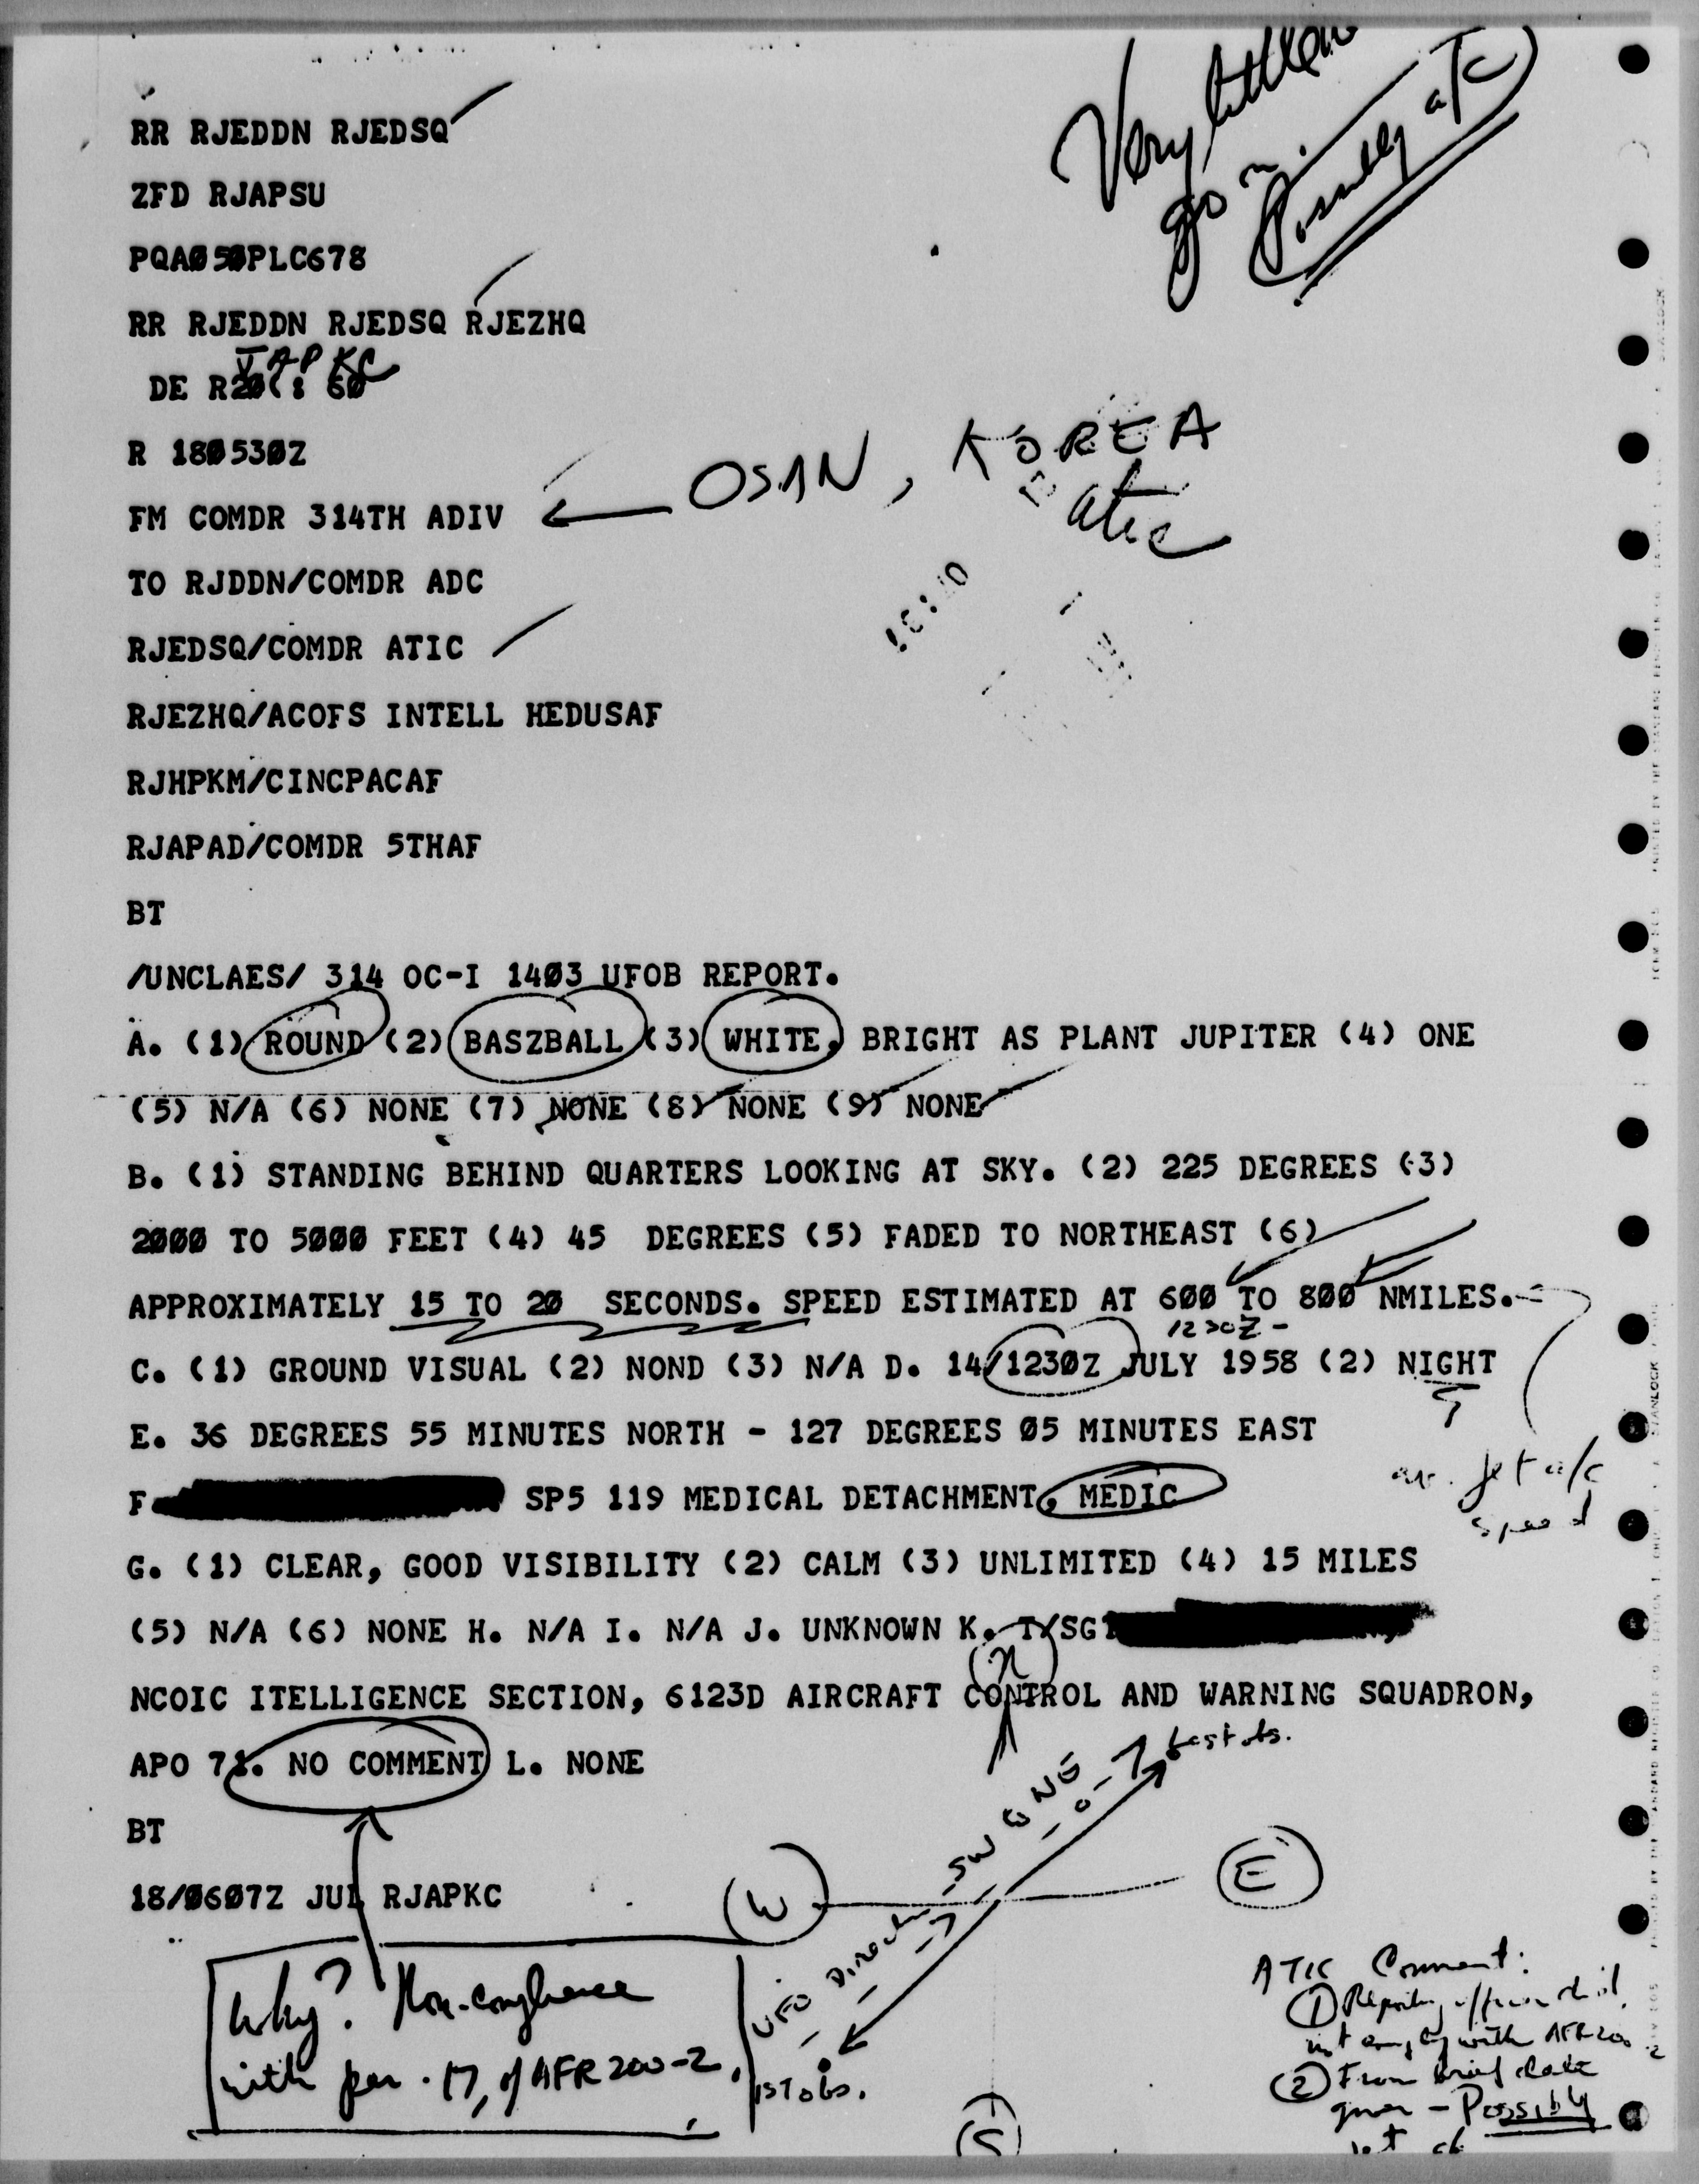 Very little
go on.
Possibly a/c
RR RJEDDN RJEDSQ
ZFD RJAPSU
PQAØ5ØPLC678
RR RJEDDN RJEDSQ RJEZHQ
JAPKC
DE R
R 18Ø53ØZ
OSAN, KOREA
atic
FM COMDR 314TH ADIV
TO RJDDN/COMDR ADC
RJEDSQ/COMDR ATIC
RJEZHQ/ACOFS INTELL HEDUSAF
RJHPKM/CINCPACAF
RJAPAD/COMDR 5THAF
BT
/UNCLAES/ 314 OC-I 14Ø3 UFOB REPORT.
A. (1) ROUND (2) BASZBALL (3) WHITE, BRIGHT AS PLANT JUPITER (4) ONE
(5) N/A (6) NONE (7) NONE (8) NONE (9) NONE
B. (1) STANDING BEHIND QUARTERS LOOKING AT SKY. (2) 225 DEGREES (3)
2ØØØ TO 5ØØØ FEET (4) 45 DEGREES (5) FADED TO NORTHEAST (6)
APPROXIMATELY 15 TO 2Ø SECONDS. SPEED ESTIMATED AT 6ØØ TO 8ØØ NMILES.
1230Z -
C. (1) GROUND VISUAL (2) NOND (3) N/A D. 14/123ØZ JULY 1958 (2) NIGHT
E. 36 DEGREES 55 MINUTES NORTH - 127 DEGREES Ø5 MINUTES EAST
av. jet a/c
speed
F SP5 119 MEDICAL DETACHMENT, MEDIC
G. (1) CLEAR, GOOD VISIBILITY (2) CALM (3) UNLIMITED (4) 15 MILES
(5) N/A (6) NONE H. N/A I. N/A J. UNKNOWN K. T/SGT
NCOIC ITELLIGENCE SECTION, 6123D AIRCRAFT CONTROL AND WARNING SQUADRON,
APO 71. NO COMMENT L. NONE
BT
18/Ø6Ø7Z JUL RJAPKC
N
W
E
S
SW to NE
last obs.
UFO Direction
1st obs.
Why? Non-compliance
with par. 17, of AFR 200-2.
ATIC Comment:
① Reporting officer did
not comply with AFR 200-2
② From brief data
given - Possibly
jet a/c